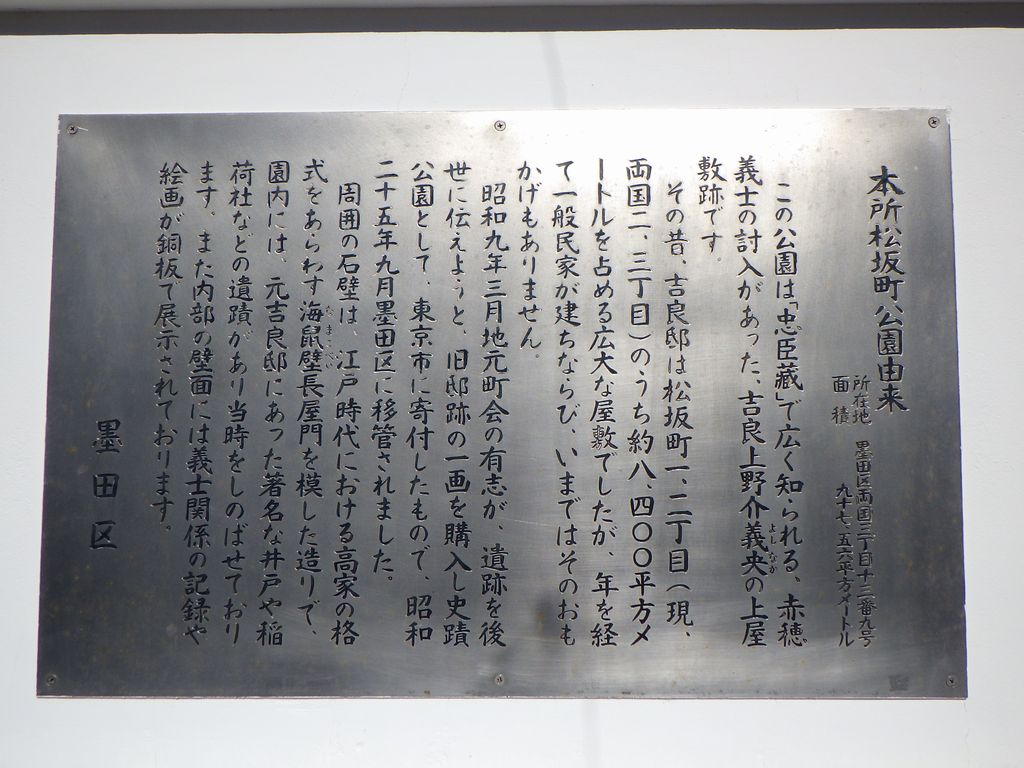 本所松坂町公園由来
所在地 墨田区両国三丁目十三番九号
面積 九十七、五六平方メートル
この公園は「忠臣藏」で広く知られる、赤穂
義士の討入があった、吉良上野介義央の上屋
よしなか
敷跡です。
その昔、吉良邸は松坂町一、二丁目(現、
両国二、三丁目)のうち約八、四〇〇平方メ
ートルを占める広大な屋敷でしたが、年を経
て一般民家が建ちならび、いまではそのおも
かげもありません。
昭和九年三月地元町会の有志が、遺跡を後
世に伝えようと、旧邸跡の一画を購入し史蹟
公園として、東京市に寄付したもので、昭和
二十五年九月墨田区に移管されました。
周囲の石壁は、江戸時代における高家の格
式をあらわす海鼠壁長屋門を模した造りで、
なまこかべ
園内には、元吉良邸にあった著名な井戸や稲
荷社などの遺蹟があり当時をしのばせており
ます。また内部の壁面には義士関係の記録や
絵画が銅板で展示されております。
墨田区